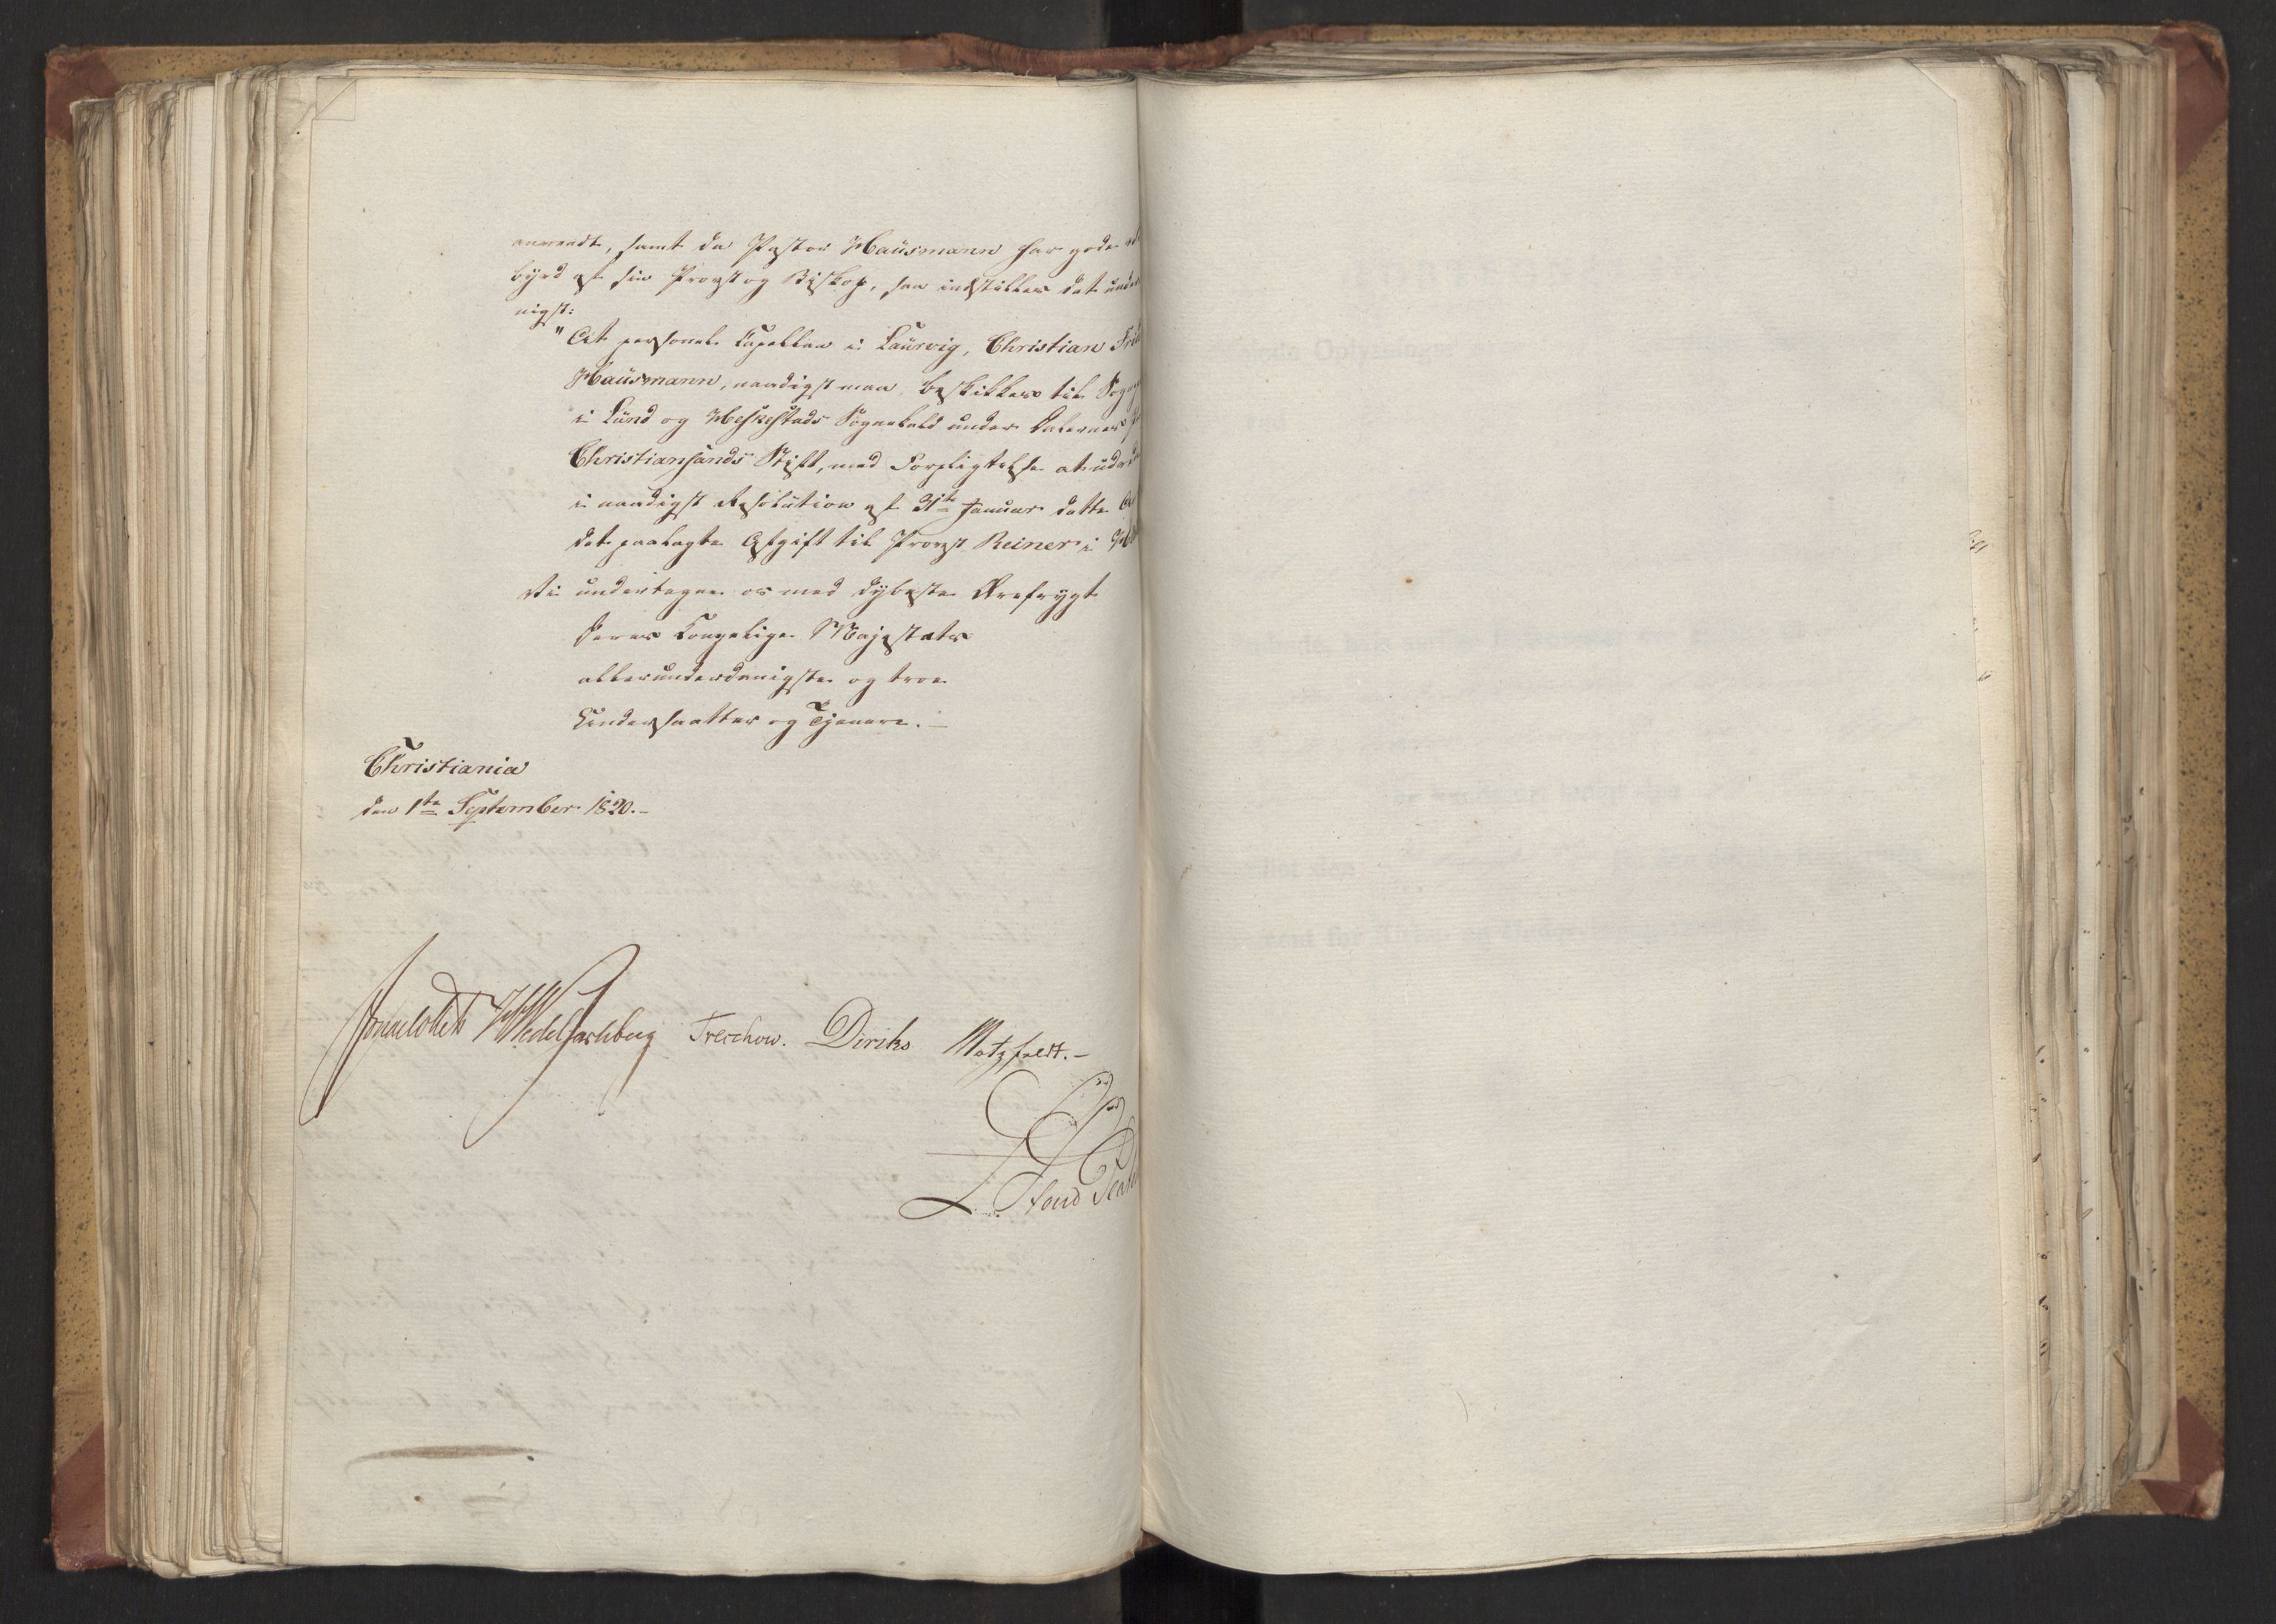 anvendt, samt da Pastor Haüsmann har gode
byrd af sin Provst og Biskop, saa indstilles det under
nigst:
"At personel Capellan i Laurvig, Christian
Haüsmann, naadigst maa beskikkes til Sogne
i Lünd og Heskestads Sognekald under Dalernes
Christiansands Stift, med Forpligtelse at udrede
i naadigst Resolution af 31te Januar dette
det paalagte Afgift til Provst Reiner i
Vi undertegne os med dybeste Ærefrygt
Deres Kongelige Majestæts
allerunderdanigste og troe
Undersaatter og Tjenere.
Christiania
den 1te September 1820.
Sommerhielm HWedelJarlsberg Treschow. Diriks Motzfeldt.